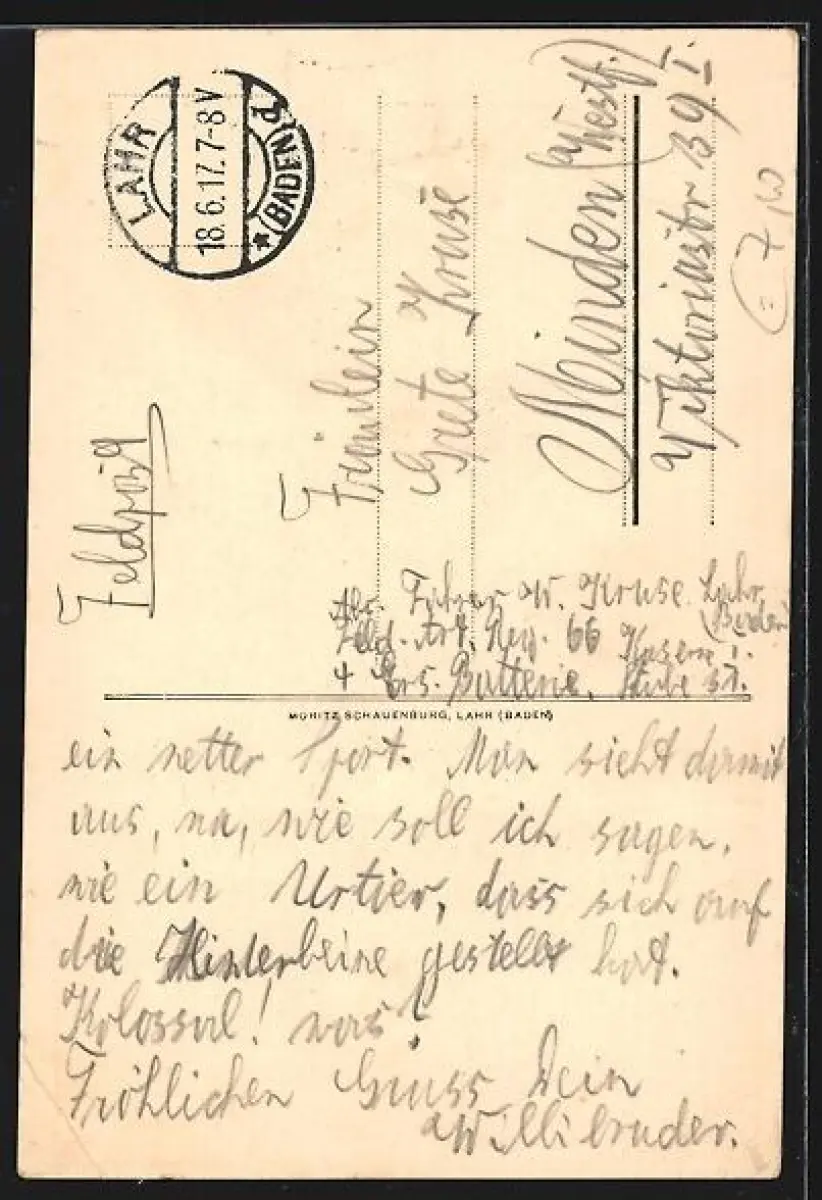 LAHR
18.6.17. 7-8 V
* (BADEN) d
Feldpost
Fräulein
Grete Kruse
Minden (Westf.)
Viktoriastr 39 I.
7,50
Abs. Fahrer W. Kruse. Lahr
(Baden)
Feld. Art. Reg. 66 Kasern I.
4 Ers. Batterie, Stube 31.
MORITZ SCHAUENBURG, LAHR (BADEN)
ein netter Sport. Man sieht damit
aus, na, wie soll ich sagen,
wie ein Urtier, dass sich auf
die Hinterbeine gestellt hat.
Kolossal! was?
Fröhlichen Gruss Dein
Willibruder.